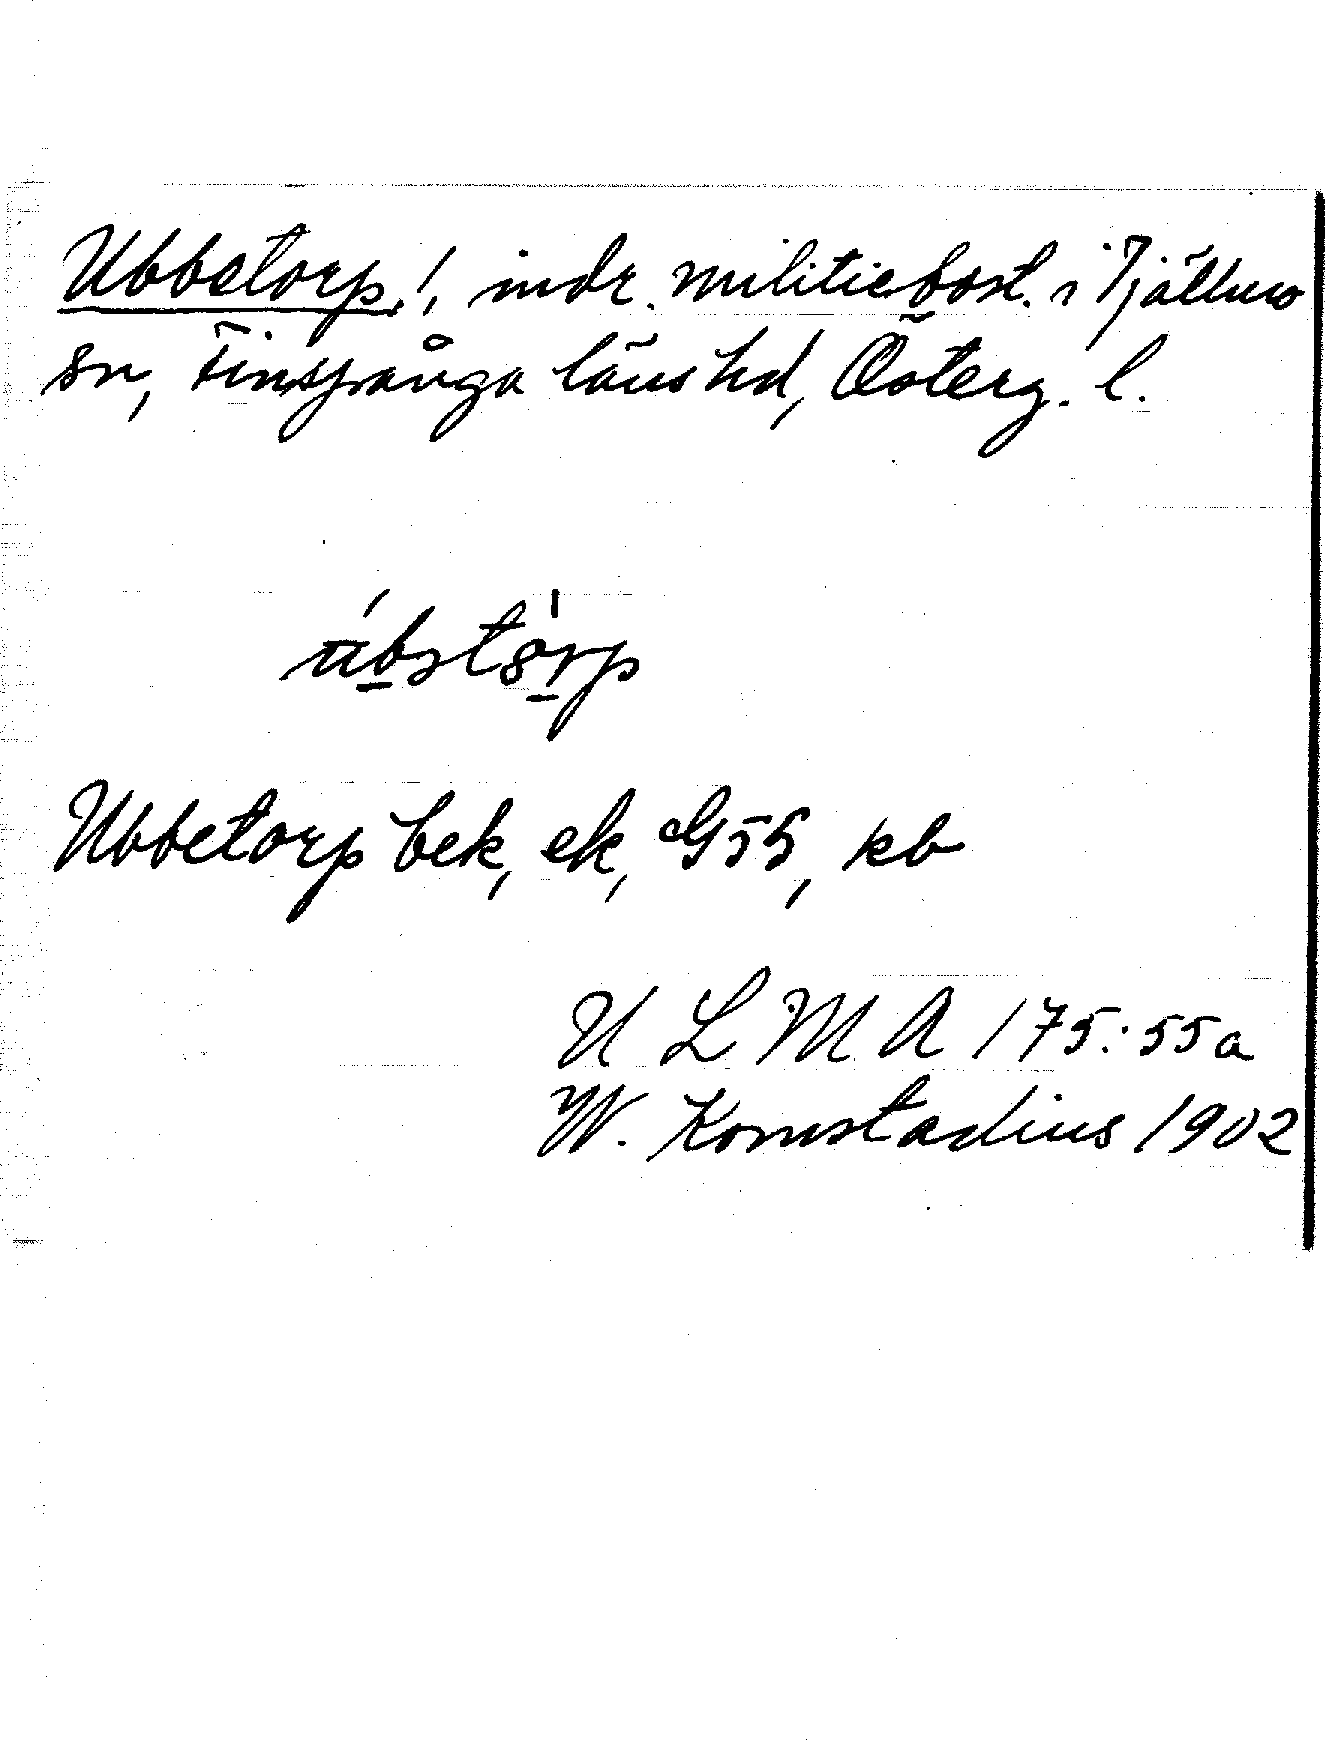 Ubbetorp!, indr. militiebost. i Tjällmo
sn, Finspånga läns hd, Österg. l.
Ubbetorp bek, ek, G55, kb
U L M A 175:55a
W. Komstadius 1902